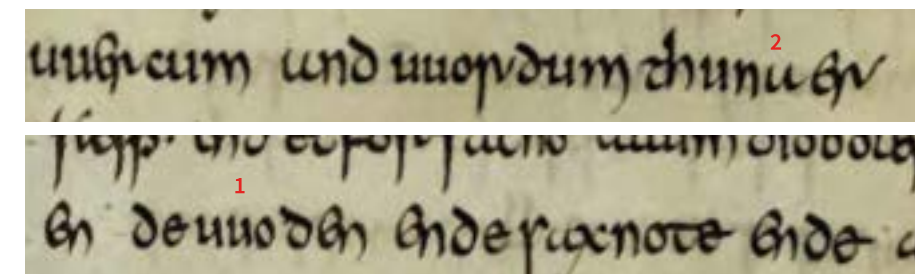 2
uuercum and uuordum thunaer
1
en de uuoden ende saxnote ende